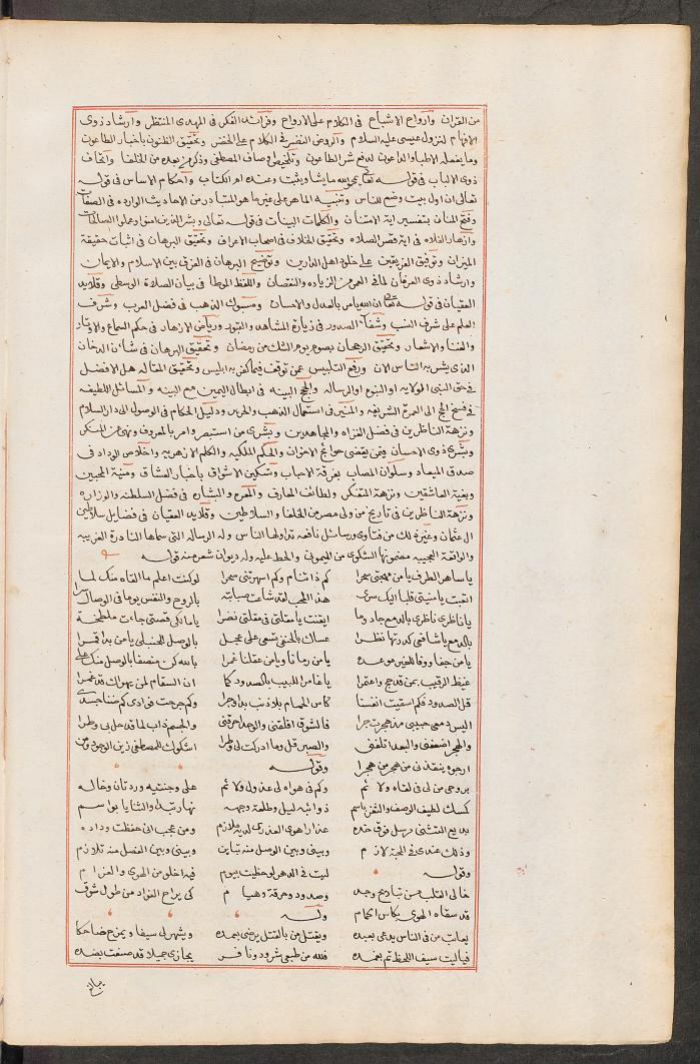 من القران وارواح الاشباح في الكلام على الارواح وفرائد الفكر في المهدى المنتظر وارشاد ذوى
الافهام لنزول عيسى عليه السلام والروض النضر في الكلام على الخضر وتحقيق الظنون باخبار الطاعون
وما يفعله الاطباء والداعون لدفع شر الطاعون وتلخيص اوصاف المصطفى وذكر من بعده من الخلفا واتحاف
ذوى الالباب في قوله تعالى يمحو الله ما يشا ويثبت وعنده ام الكتاب واحكام الاساس في قوله
تعالى ان اول بيت وضع للناس وتنبيه الماهر على غير ما هو المتبادر من الاحاديث الوارده في الصفات
وفتح المنان بتفسير اية الامتنان والكلمات البينات في قوله تعالى وبشر الذين امنوا وعملوا الصالحات
وازهار الفلاه في اية قصر الصلاه وتحقيق الخلاف في اصحاب الاعراف وتحقيق البرهان في اثبات حقيقة
الميزان وتوفيق الفريقين على خلود اهل الدارين وتوضيح البرهان في الفرق بين الاسلام والايمان
وارشاد ذوى العرفان لما في العمر من الزياده والنقصان واللفظ الموطا في بيان الصلاة الوسطى وقلايد
العقيان في قوله تعالى ان الله يامر بالعدل والاحسان ومسبوك الذهب في فضل العرب وشرف
العلم على شرف النسب وشفآ الصدور في زيارة المشاهد والقبور ورياض الازهار في حكم السماع والاوتار
والغنا والاشعار وتحقيق الرجحان بصوم يوم الشك من رمضان وتحقيق البرهان في شان الدخان
الذي يشربه الناس الان ورفع التلبيس عمن توقف فيما كفر به ابليس وتحقيق المقاله هل الافضل
في حق النبى الولايه او النبوه او الرساله والحجج البينه في ابطال اليمين مع البينه والمسائل اللطيفه
في فسخ الحج الى العمرة الشريفه والمنير في استعمال الذهب والحرير ودليل الحكام في الوصول الى دار السلام
ونزهة الناظرين في فضل الغزاه والمجاهدين وبشرى من استبصر وامر بالمعروف ونهى عن المنكر
وبشرى ذوى الاحسان لمن يقضى حوائج الاخوان والحكم الملكيه والكلم الازهريه واخلاص الوداد في
صدق الميعاد وسلوان المصاب بفرقة الاحباب وتسكين الاشواق باخبار العشاق ومنية المحبين
وبغية العاشقين ونزهة المتفكر ولطائف المعارف والمسره والبشاره في فضل السلطنه والوزاره
ونزهة الناظرين في تاريخ من ولى مصر من الخلفا والسلاطين وقلايد العقيان في فضايل سلاطين
ال عثمان وغير ذلك من فتاوى ورسائل نافعه تداولها الناس وله الرساله التى سماها النادرة الغريبه
والواقعة العجيبه مضمونها الشكوى من الميمونى والحط عليه وله ديوان شعر منه قوله
يا ساهر الطرف يا من مهجتى سحرا كم ذا تنام وكم اسهرتنى سحرا لو كنت اعلم ما القاه منك لما
اتعبت يا منيتى قلبا اليك سرى هذا المحب لقد شاعت صبابته بالروح والنفس يوما في الوصال شرا
يا ناظرى ناظرى بالدمع جاد وما ابقيت يا مقلتى في مقلتى نضرا يا مالكى قصتى جاءت ملطخة
بالدمع يا شافعى كدرتها نظرا عساك بالحنفى تسعى على عجل بالوصل للحنبلى يا من بدا قمرا
يا من جفا ووفا للغير موعده يا من رمانا ويا من عقلنا غمرا بالله كن منصفا بالوصل منك على
غيظ الرقيب بمن قد حج واعتمرا يا غامرا للبيب بالصدود كما ان السقام لمن يهواك قد غمرا
قل الصدود فكم اسقيت انفسنا كاس الحمام بلا ذنب بدا وجرا وكم جرحت فوادى كم ضنا جسدى
اليس دمعى حبيبى مذ هجرت جرا فالشوق اقلقنى والوجد احرقنى والجسم ذاب لما قد حل بى وطرا
والهجر اضعفنى والبعد اتلفنى والصبر قل وما ادركت لى وطرا اشكوك للمصطفى زين الوجود ومن
ارجوه ينقذنى من هجر من هجرا وقوله
بروحى من لى في لقاه ولائم وكم في هواه لى عذول ولائم على وجنتيه وردتان وخاله
كمسك لطيف الوصف والثغر باسم ذوائبه ليل وطلعة وجهه نهار تبدى والثنايا بواسم
بديع التثنى مرسل فوق خده عذارا هوى العذرى لديه ملازم ومن عجب انى حفظت وداده
وذلك عندى في المحبة لازم وبينى وبين الوصل منه تباين وبينى وبين الفصل منه تلازم
وقوله ليت في الدهر لو حظيت بيوم فيه اخلو من الهوى والغرام
خالى القلب من تباريح وجد وصدود وحرقة وهيام كى يراح الفواد من طول شوق
قد سقاه الهوى بكاس الحمام وله
يعاتب من في الناس يدعى بعبده ويقتل من بالقتل يرضى بعمده ويشهر لى سيفا ويمزح ضاحكا
فياليت سيف اللحظ تم بغمده فلله من ظبى شرود ونافر يجازى جميلا قد صنعت بضده
يمانع